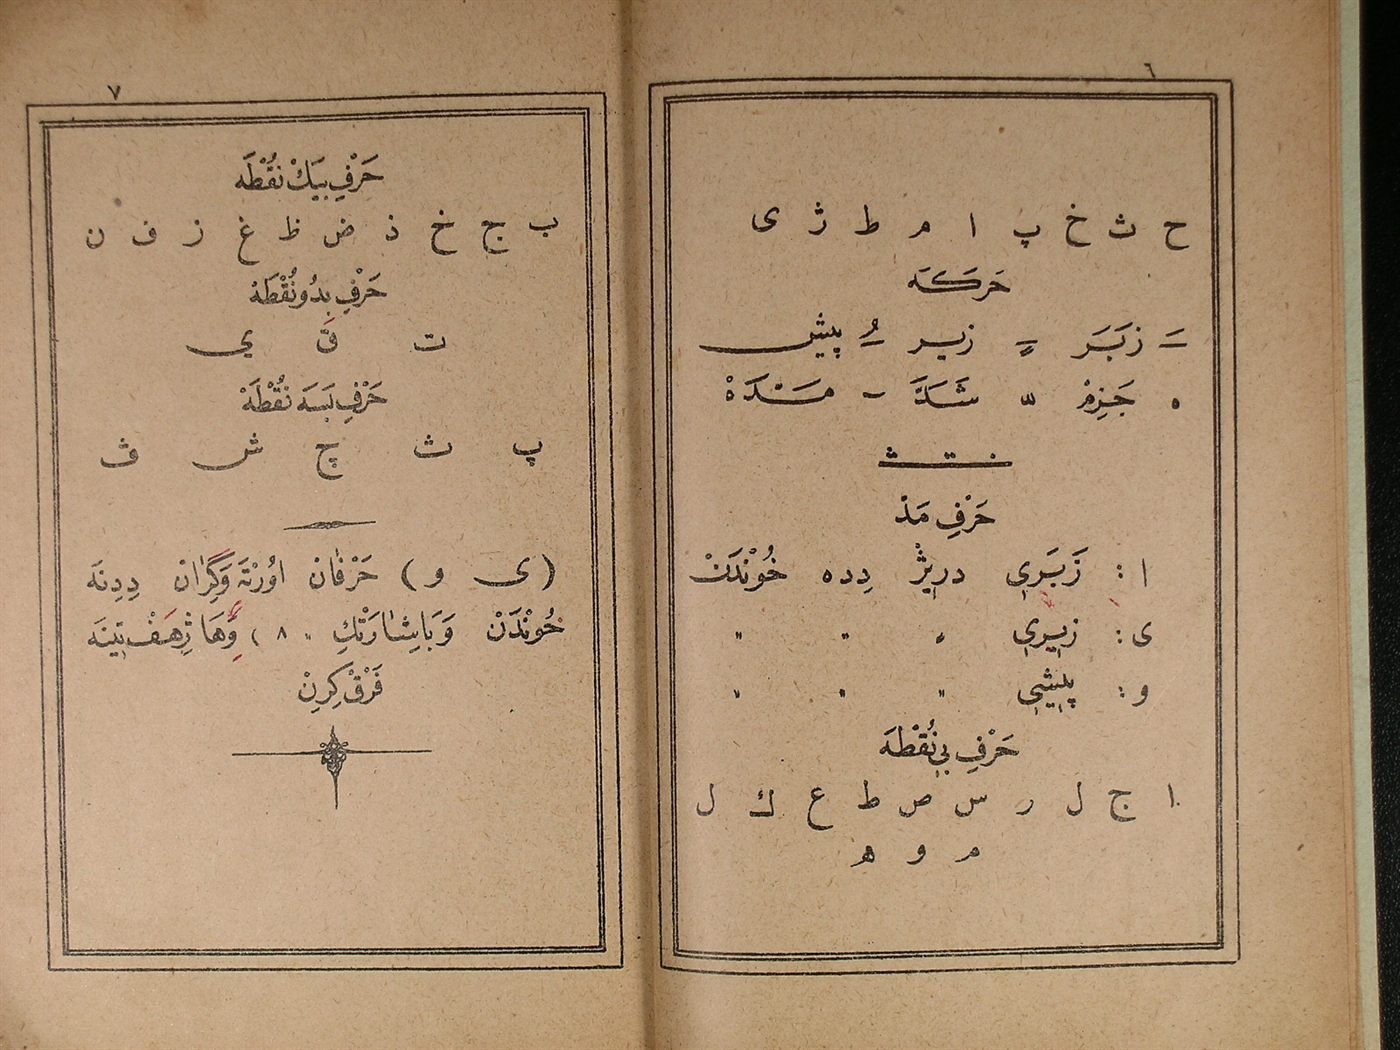 ٦
ح ث خ پ ا م ط ژ ی
حَرَكَه
زَبَرَ زیر پیش
جَزِمْ شَدَّ مَدَّه
ـنـتـثـ
حَرْفِ مَدْ
ا : زَبَرِي دريژْ دده خُونْدَنْ
ی : زِيرِي " " " "
و : پِيشِي " " " "
حَرْفِ بِي نُقْطَه
ا ح ل ر س ص ط ع ك ل
م و ه
٧
حَرْفِ بَيَكْ نُقْطَه
ب ج خ ذ ض ظ غ ز ف ن
حَرْفِ بِدُو نُقْطَهْ
ت ق ي
حَرْفِ بَسَه نُقْطَهْ
پ ث چ ش ڤ
(ی و) حَرْفَان اوُرْتَه وَگِرَان دِدِنَه
خُونْدَنْ وَبَاشَارَتْكِ
فَرْقْ كِرِنْ